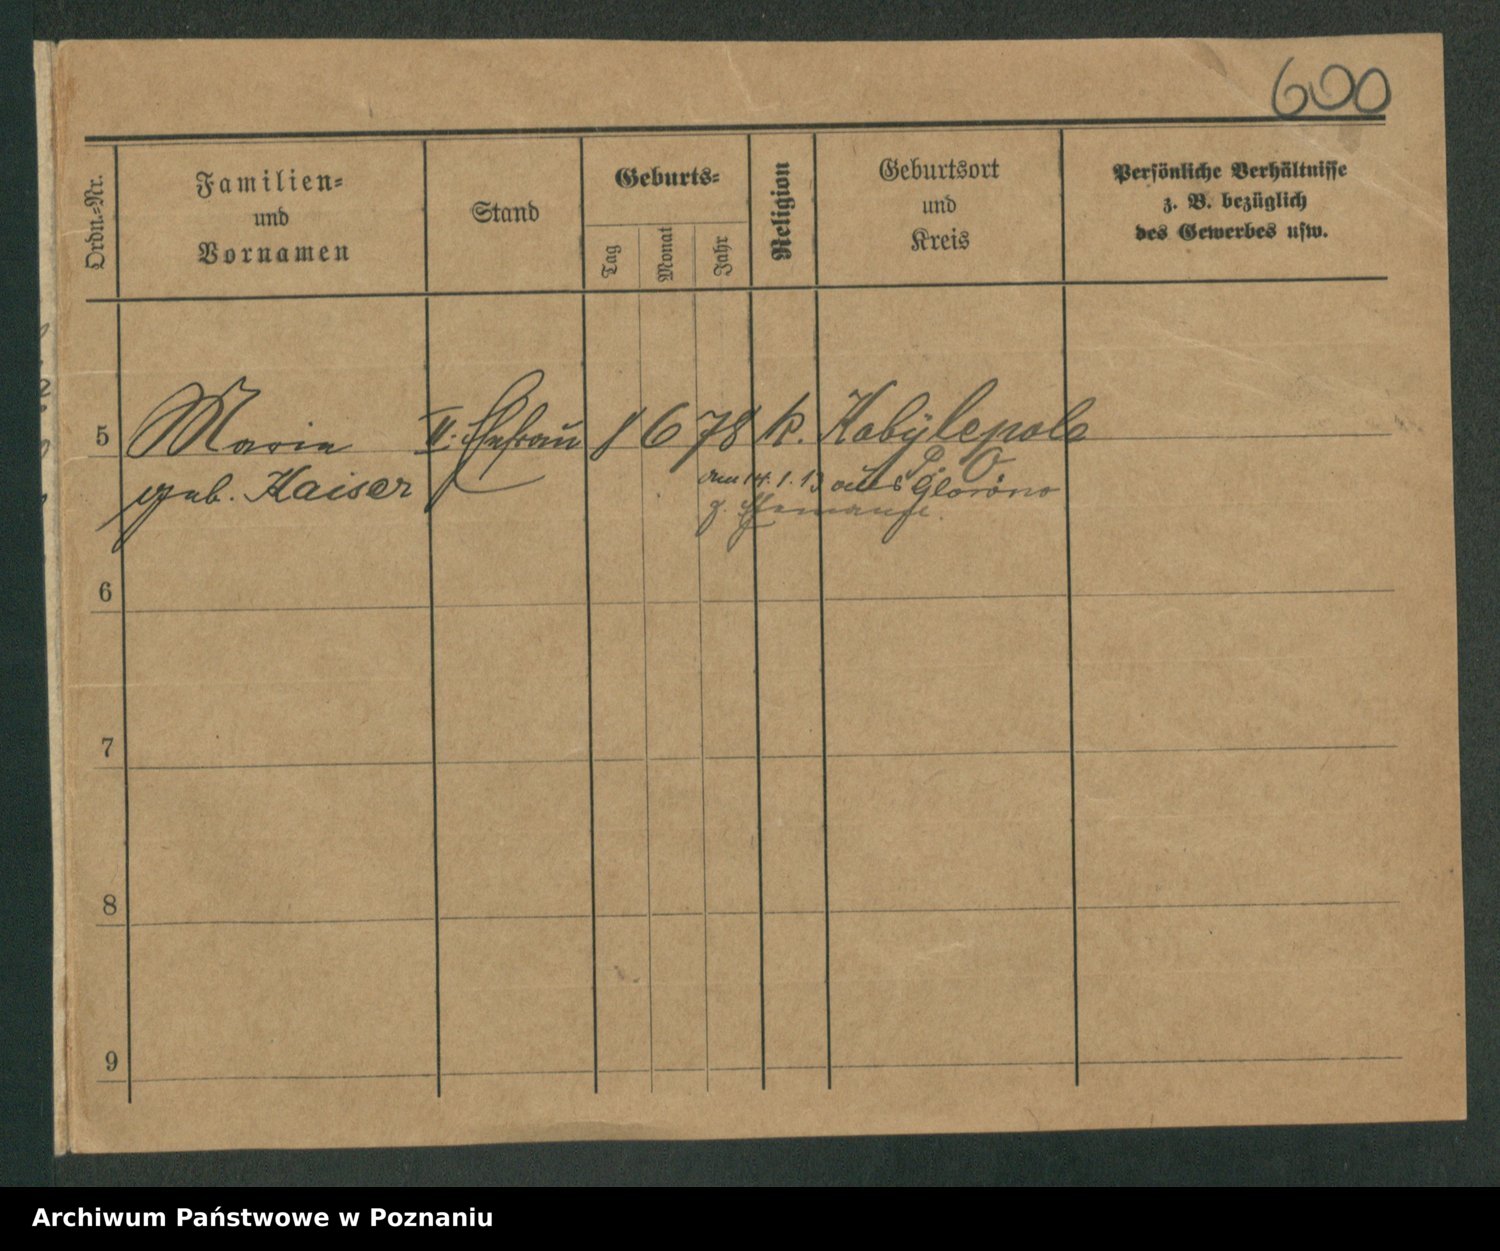 600
Ordn.-Nr.
Familien-
und
Vornamen
Stand
Geburts-
Tag
Monat
Jahr
Religion
Geburtsort
und
Kreis
Persönliche Verhältnisse
z. B. bezüglich
des Gewerbes usw.
5 Marie II. Ehefrau 8 6 78 k. Kobylepole
geb. Kaiser den 14.1.13 aus
P. O.
z. Ehemanne.
6
7
8
9
Archiwum Państwowe w Poznaniu